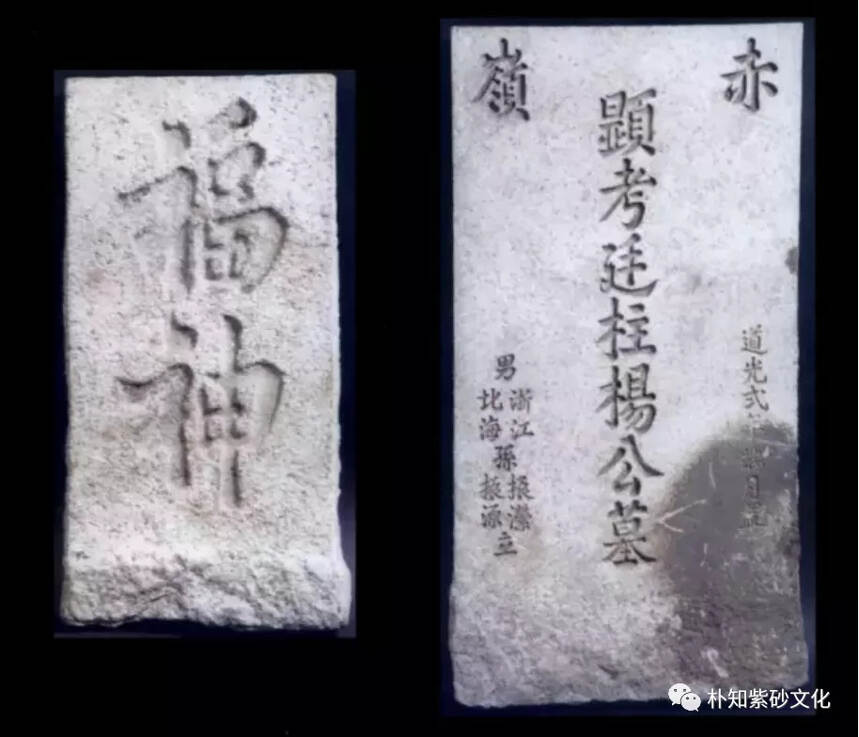 福神
赤嶺
道光弍年 月
顕考廷柱楊公墓
男浙江比海孫振濚振源立
朴知紫砂文化